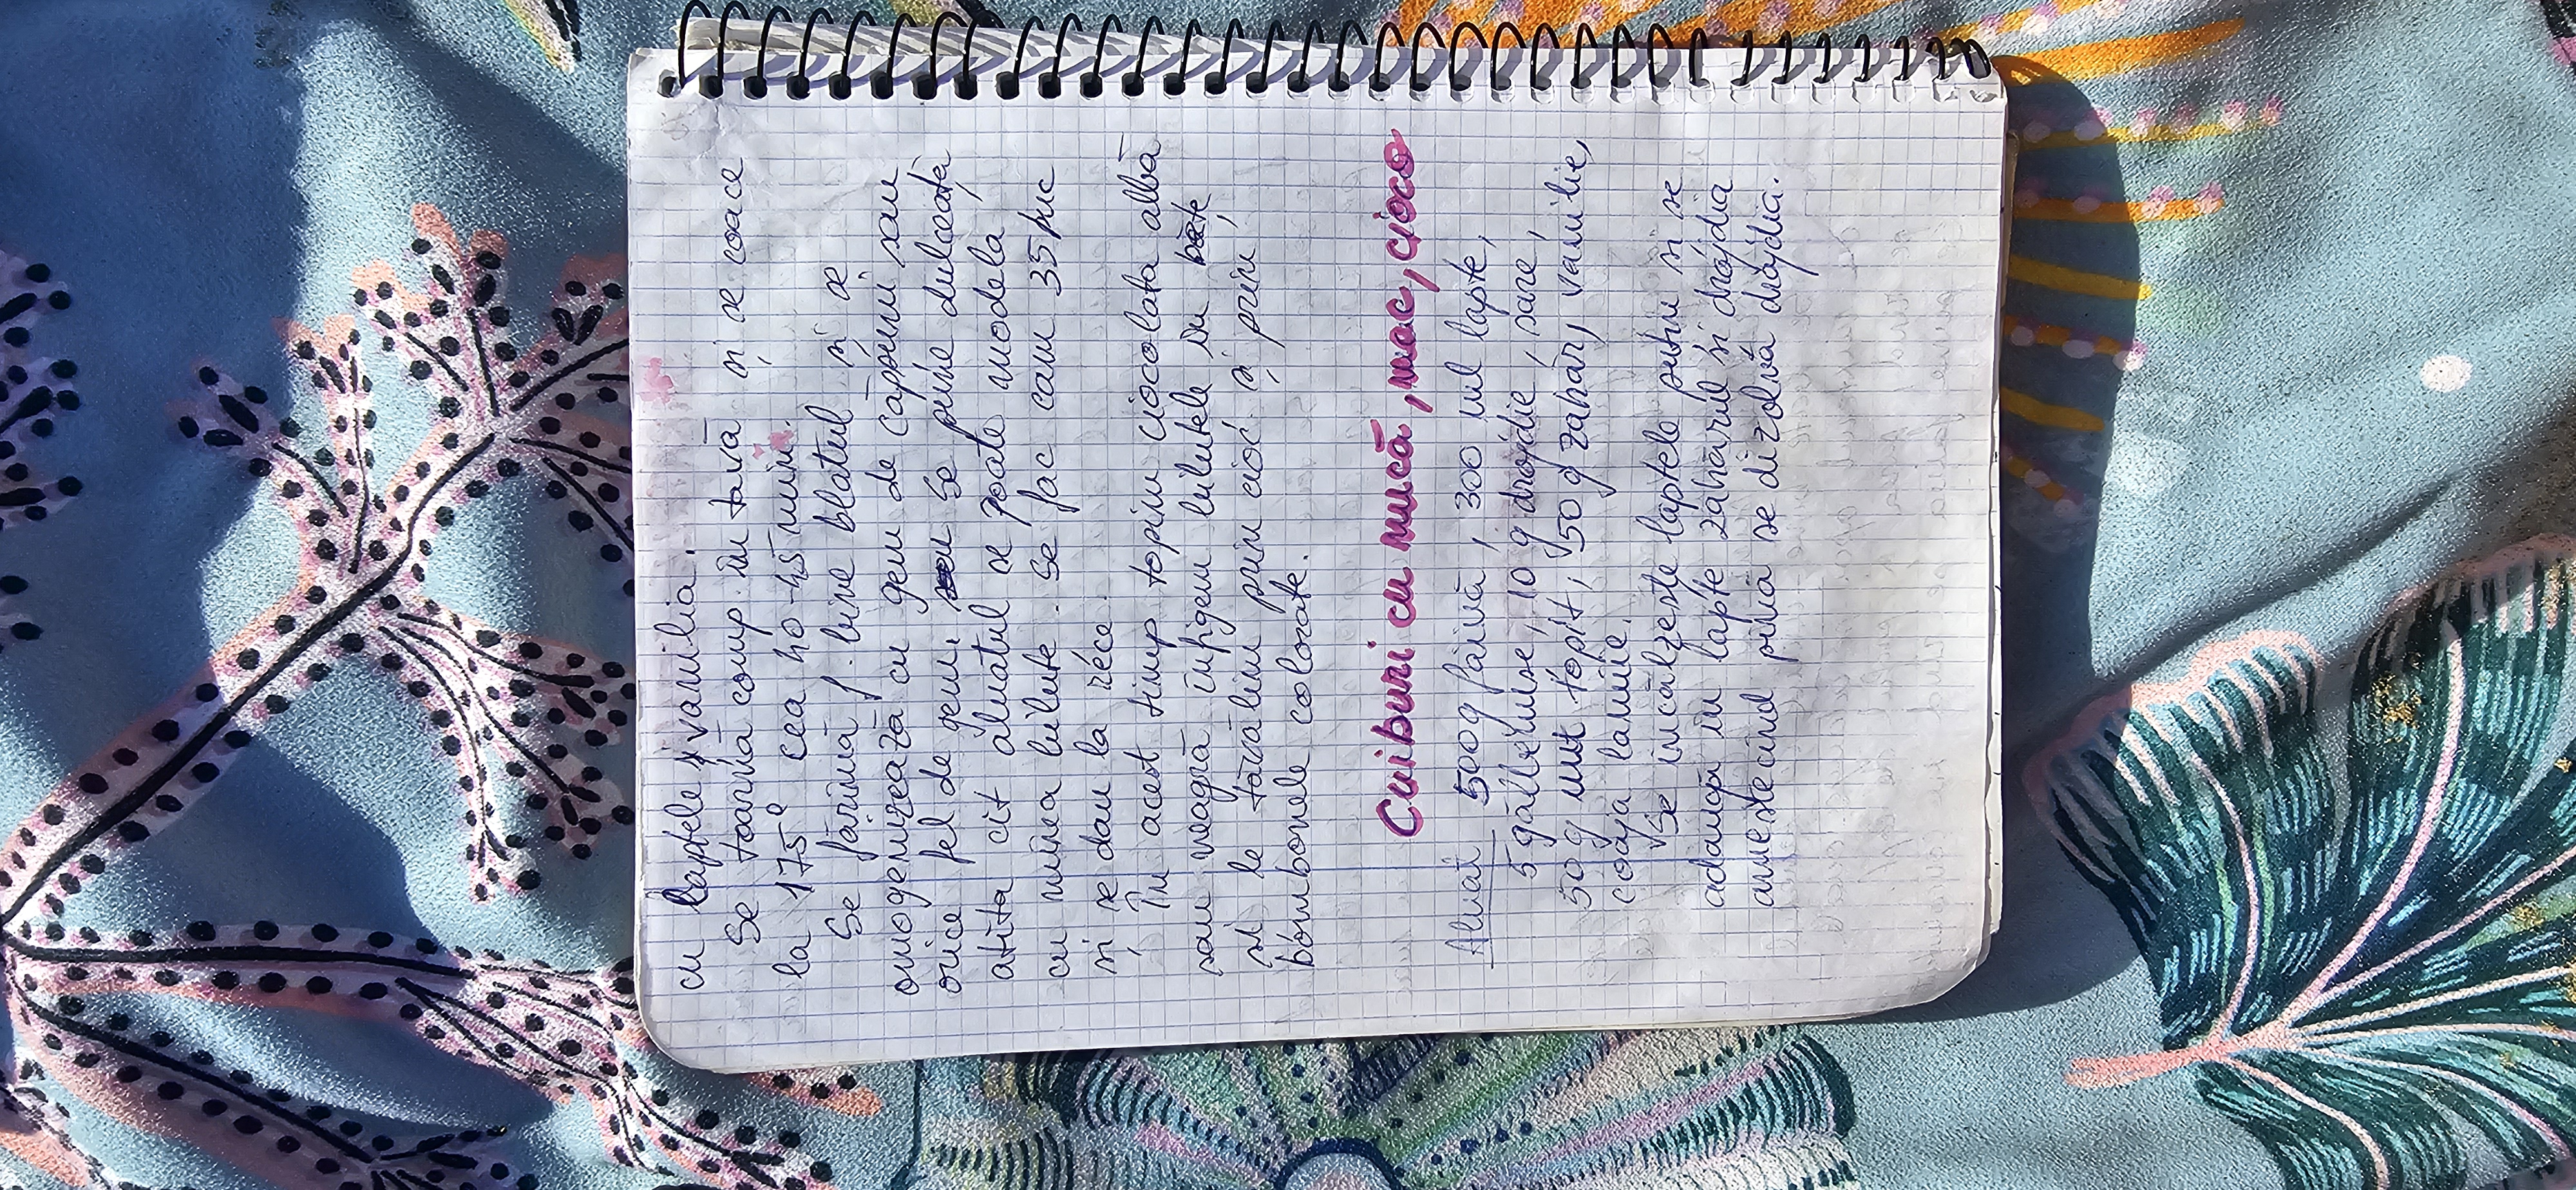 cu laptele și vanilia.
Se toarnă comp. în tavă și se coace
la 175° cea 40-45 min.
Se fărîmă f. bine blatul și se
omogenizează cu gem de căpșuni sau
orice fel de gem. Se pune dulceață
atîta cît aluatul se poate modela
cu mîna biluțe. Se fac cam 35 buc
și se dau la rece.
În acest timp topim ciocolata albă
sau neagră înfigem biluțele în bețe
și le tăvălim prin cioc. și prin
bombonele colorate.
Cuiburi cu nucă, mac, cioco
Aluat 500g făină, 300 ml lapte,
5 gălbenușe, 10 g drojdie, sare,
50 g unt topit, 50 g zahăr, vanilie,
coaja lamîie.
Se încălzește laptele puțin și se
adaugă în lapte zahărul și drojdia
amestecînd pînă se dizolvă drojdia.